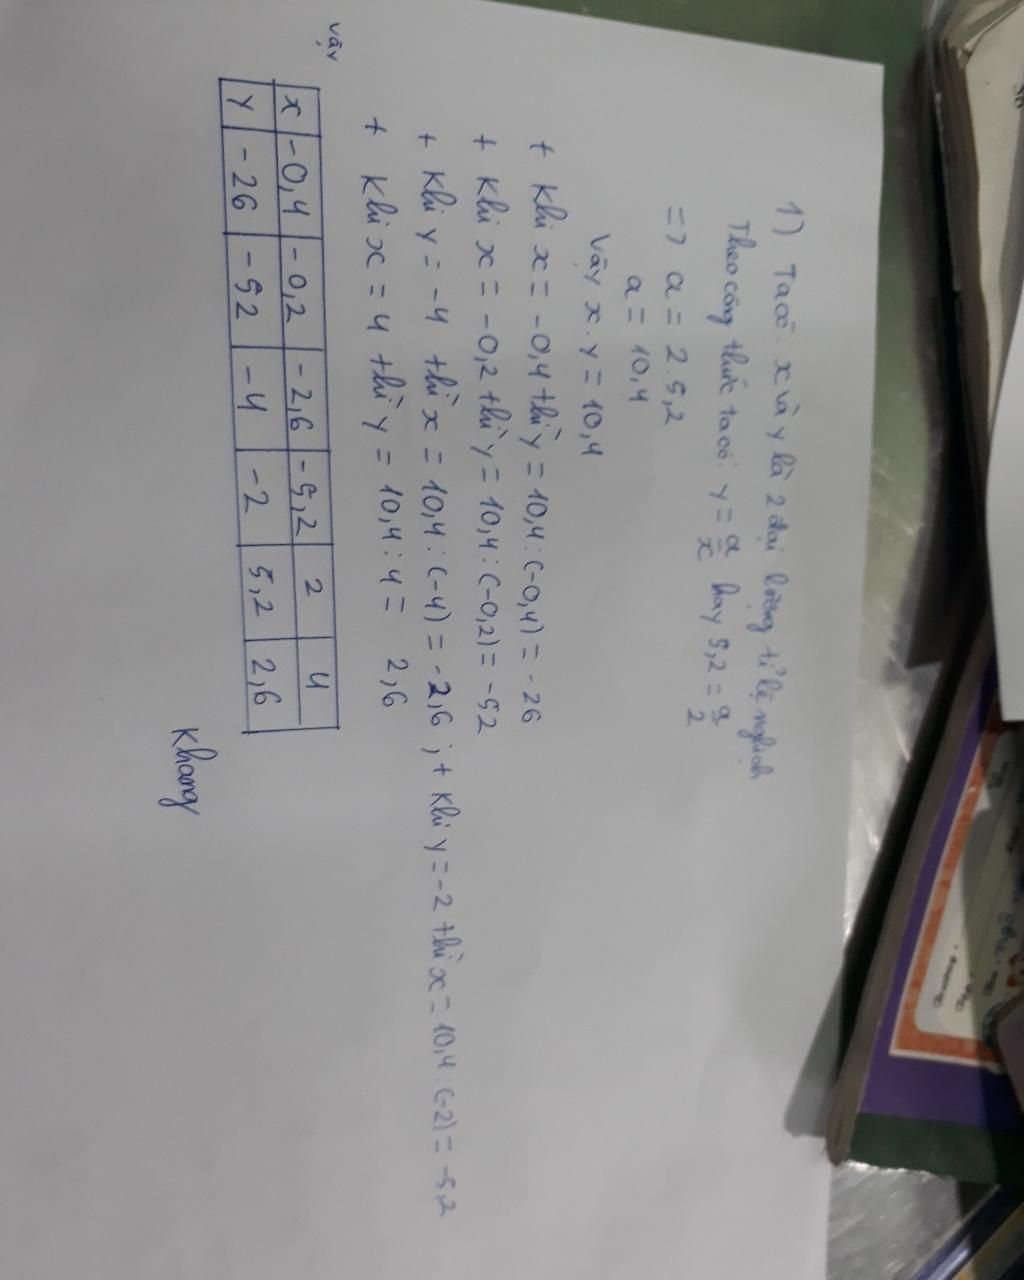 1) Ta có: x và y là 2 đại lượng tỉ lệ nghịch
Theo công thức ta có: y = a/x hay 5,2 = a/2
=> a = 2.5,2
a = 10,4
Vậy x.y = 10,4
+ Khi x = -0,4 thì y = 10,4:(-0,4) = -26
+ Khi x = -0,2 thì y = 10,4:(-0,2) = -52
+ Khi y = -4 thì x = 10,4:(-4) = -2,6; + Khi y = -2 thì x = 10,4:(-2) = -5,2
+ Khi x = 4 thì y = 10,4:4 = 2,6
Vậy
x -0,4 -0,2 -2,6 -5,2 2 4
y -26 -52 -4 -2 5,2 2,6
Khang